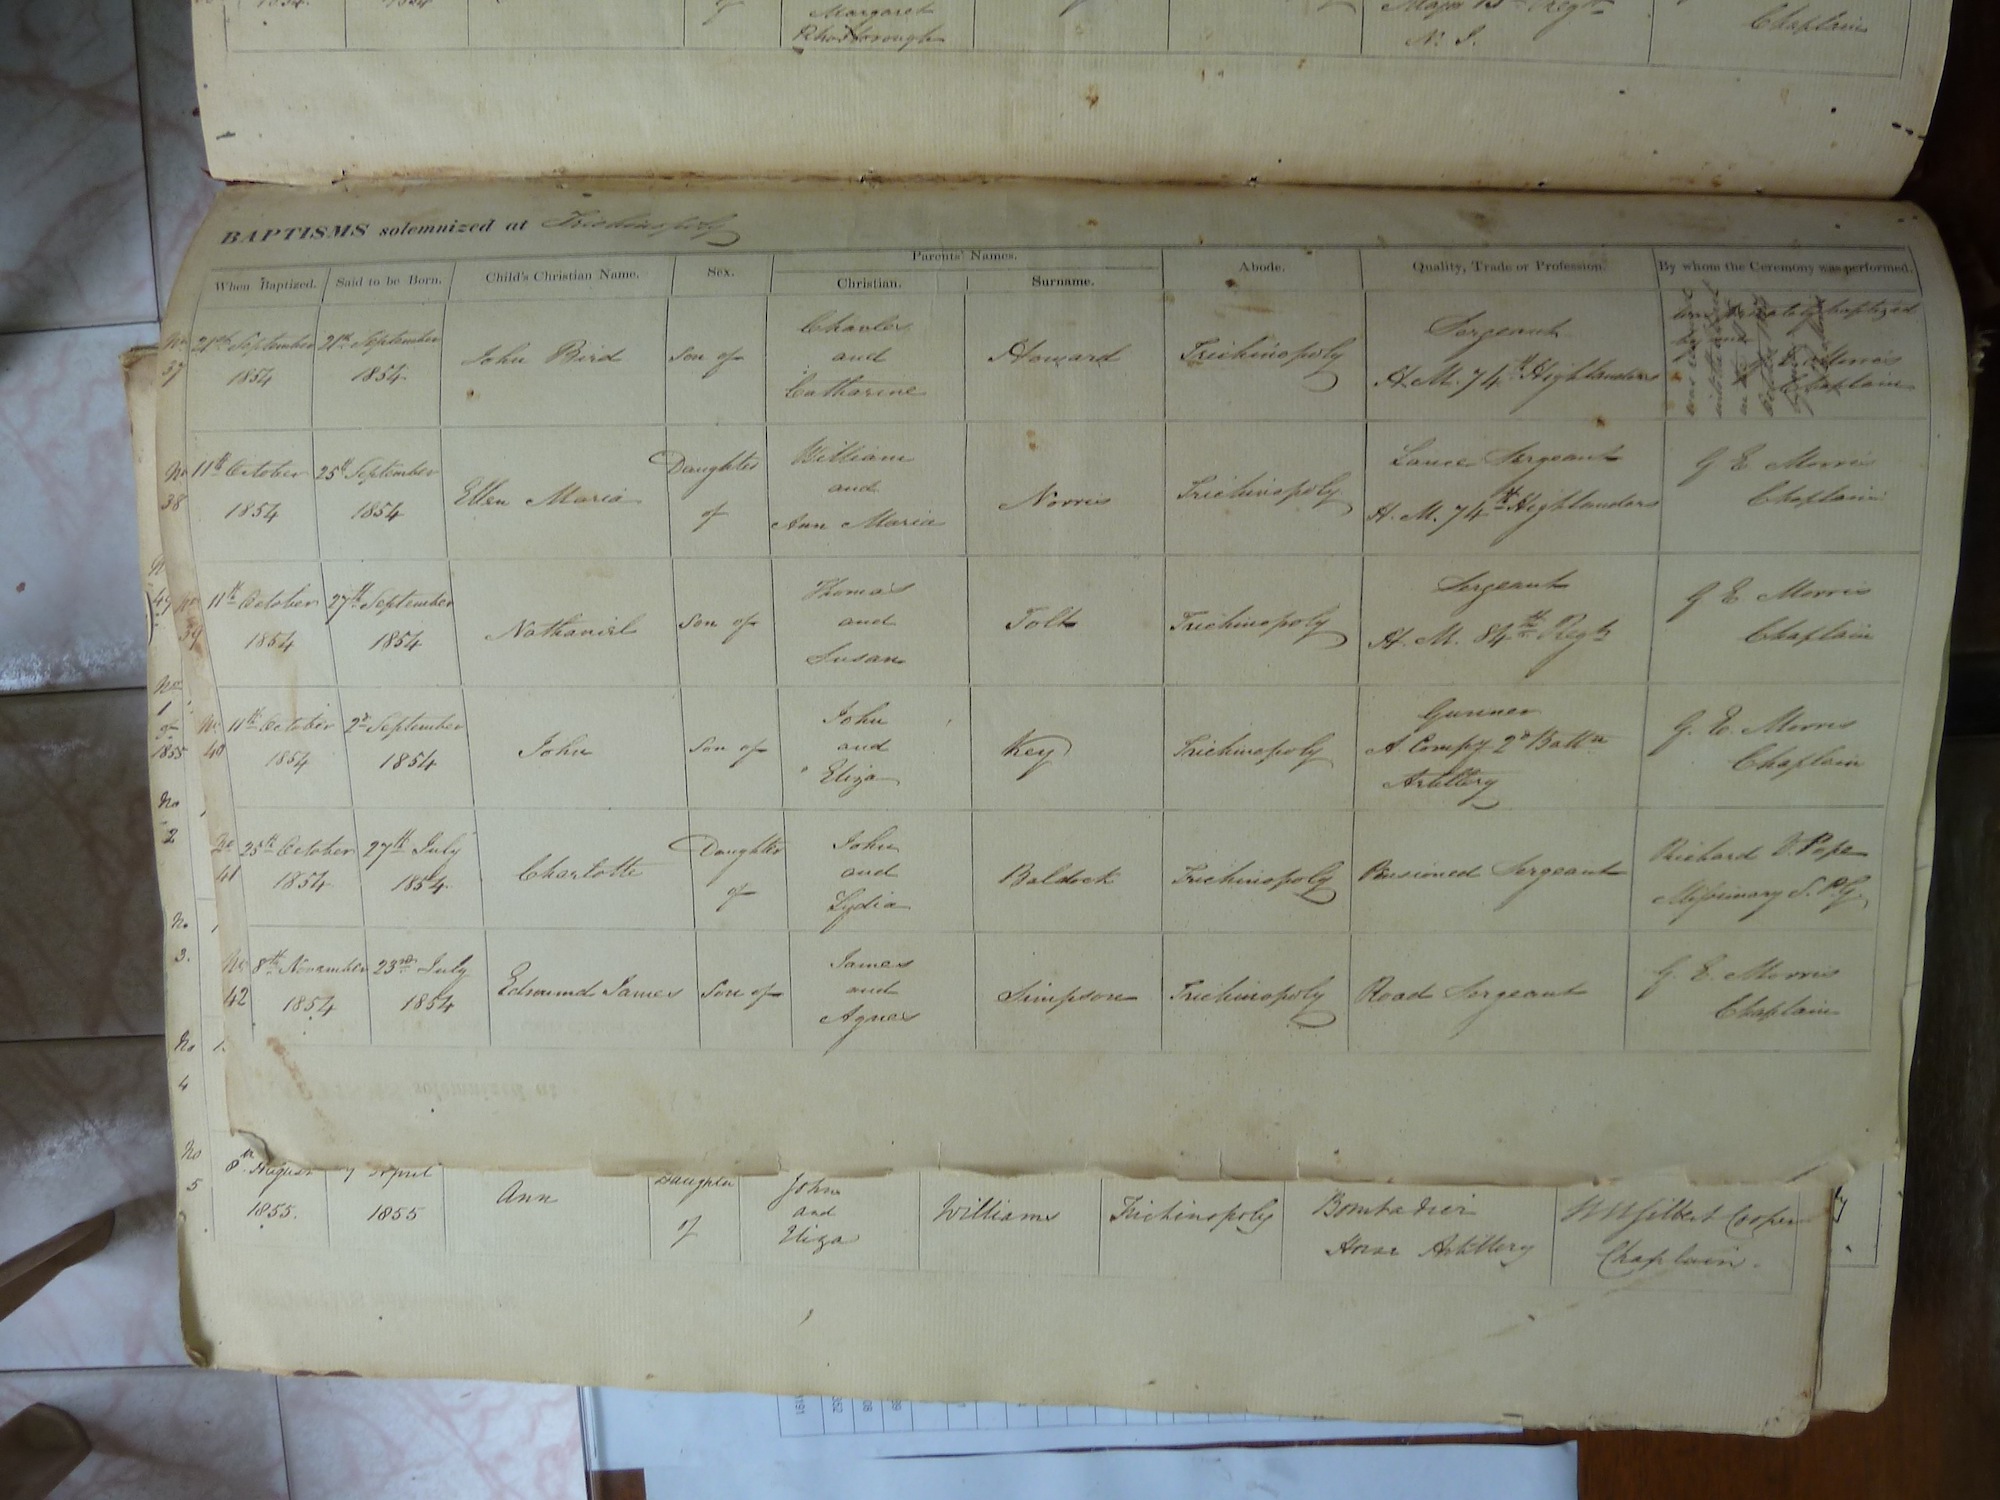 1854. 1854 of Margaret Major 13th Regt
N. I. Chaplain
BAPTISMS solemnized at Trichinopoly
When Baptized. Said to be Born. Child's Christian Name. Sex. Parents' Names. Abode. Quality, Trade or Profession. By whom the Ceremony was performed.
Christian. Surname.
No 21st September 21st September John Bird Son of Charles Howard Trichinopoly Sergeant was privately baptized
37 1854 1854 and H. M. 74th Highlanders G E Morris
Catharine Chaplain
No 11th October 25th September Ellen Maria Daughter William Norris Trichinopoly Lance Sergeant G E Morris
38 1854 1854 of and H. M. 74th Highlanders Chaplain
Ann Maria
No 11th October 27th September Nathaniel Son of Thomas Tolt Trichinopoly Sergeant G E Morris
39 1854 1854 and H. M. 84th Regt Chaplain
Susan
No 11th October 2d September John Son of John Key Trichinopoly Gunner G. E. Morris
40 1854 1854 and A Compy 2d Battn Chaplain
Eliza Artillery
No 25th October 27th July Charlotte Daughter John Baldock Trichinopoly Pensioned Sergeant Richard V. Pope
41 1854 1854 of and Missionary S. P. G.
Lydia
No 8th November 23rd July Edmund James Son of James Simpson Trichinopoly Road Sergeant G. E. Morris
42 1854 1854 and Chaplain
Agnes
49
No
1
of
1855
No
2
No
3.
No
4
No
5
8th August 7 April Ann Daughter John Williams Trichinopoly Bombadier Chaplain.
1855. 1855 of and Horse Artillery
Eliza